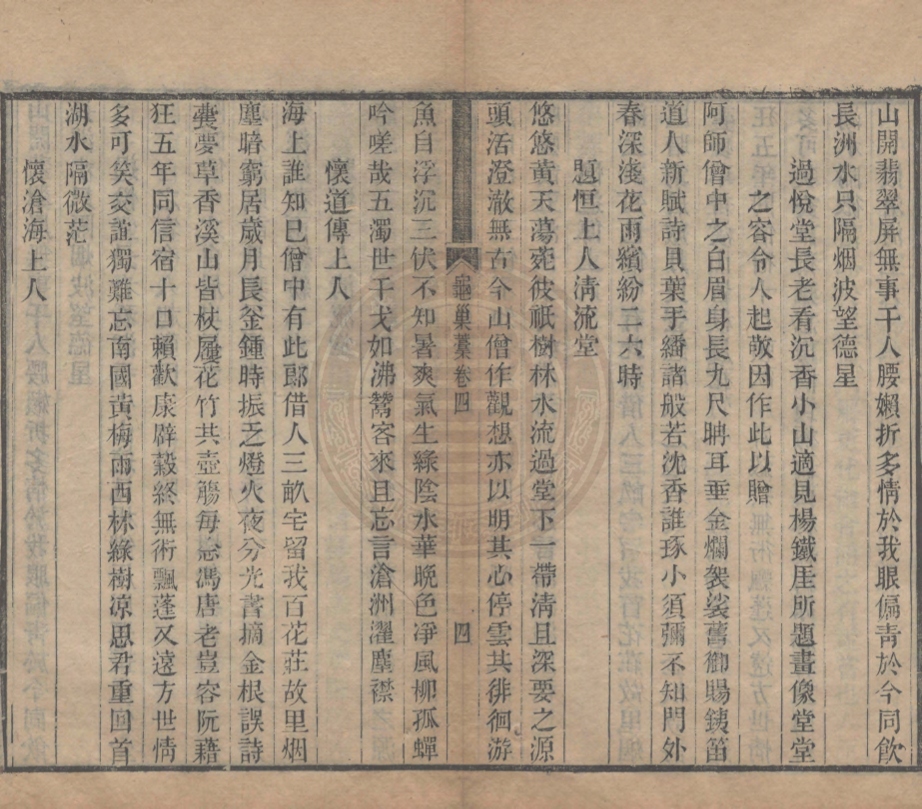 山開翡翠屏無事千人腰嬾折多情於我眼偏青於今同飲
長洲水只隔烟波望德星
過悅堂長老看沉香小山適見楊鐵厓所題畫像堂堂
之容令人起敬因作此以贈
阿師僧中之白眉身長九尺聃耳垂金爛袈裟舊御賜銕笛
道人新賦詩貝葉手繙諸般若沈香誰琢小須彌不知門外
春深淺花雨繽紛二六時
題恒上人淸流堂
悠悠黄天蕩菀彼祇樹林水流過堂下一帶淸且深要之源
頭活澄澈無古今山僧作觀想亦以明其心停雲其徘徊游
魚自浮沉三伏不知暑爽氣生綠陰水華晚色凈風柳孤蟬
吟嗟哉五濁世干戈如沸鬵客來且忘言滄洲濯塵襟
龜巢藳卷四
四
懷道傳上人
海上誰知已僧中有此郞借人三畝宅留我百花莊故里烟
塵暗窮居歲月長釜鍾時振乏燈火夜分光書摘金根誤詩
囊夢草香溪山皆杖屨花竹共壺觴每念馮唐老豈容阮藉
狂五年同信宿十口賴歡康辟穀終無術飄蓬又遠方世情
多可笑交誼獨難忘南國黄梅雨西林綠樹凉思君重回首
湖水隔微茫
懷滄海上人